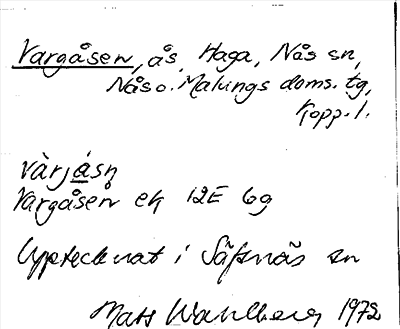 Vargåsen, ås, Haga, Nås sn,
Nås o. Malungs doms. tg,
Kopp. l.
vàrjåsn
Vargåsen ek 12E 6g
Upptecknat i Säfsnäs sn
Mats Wahlberg 1972